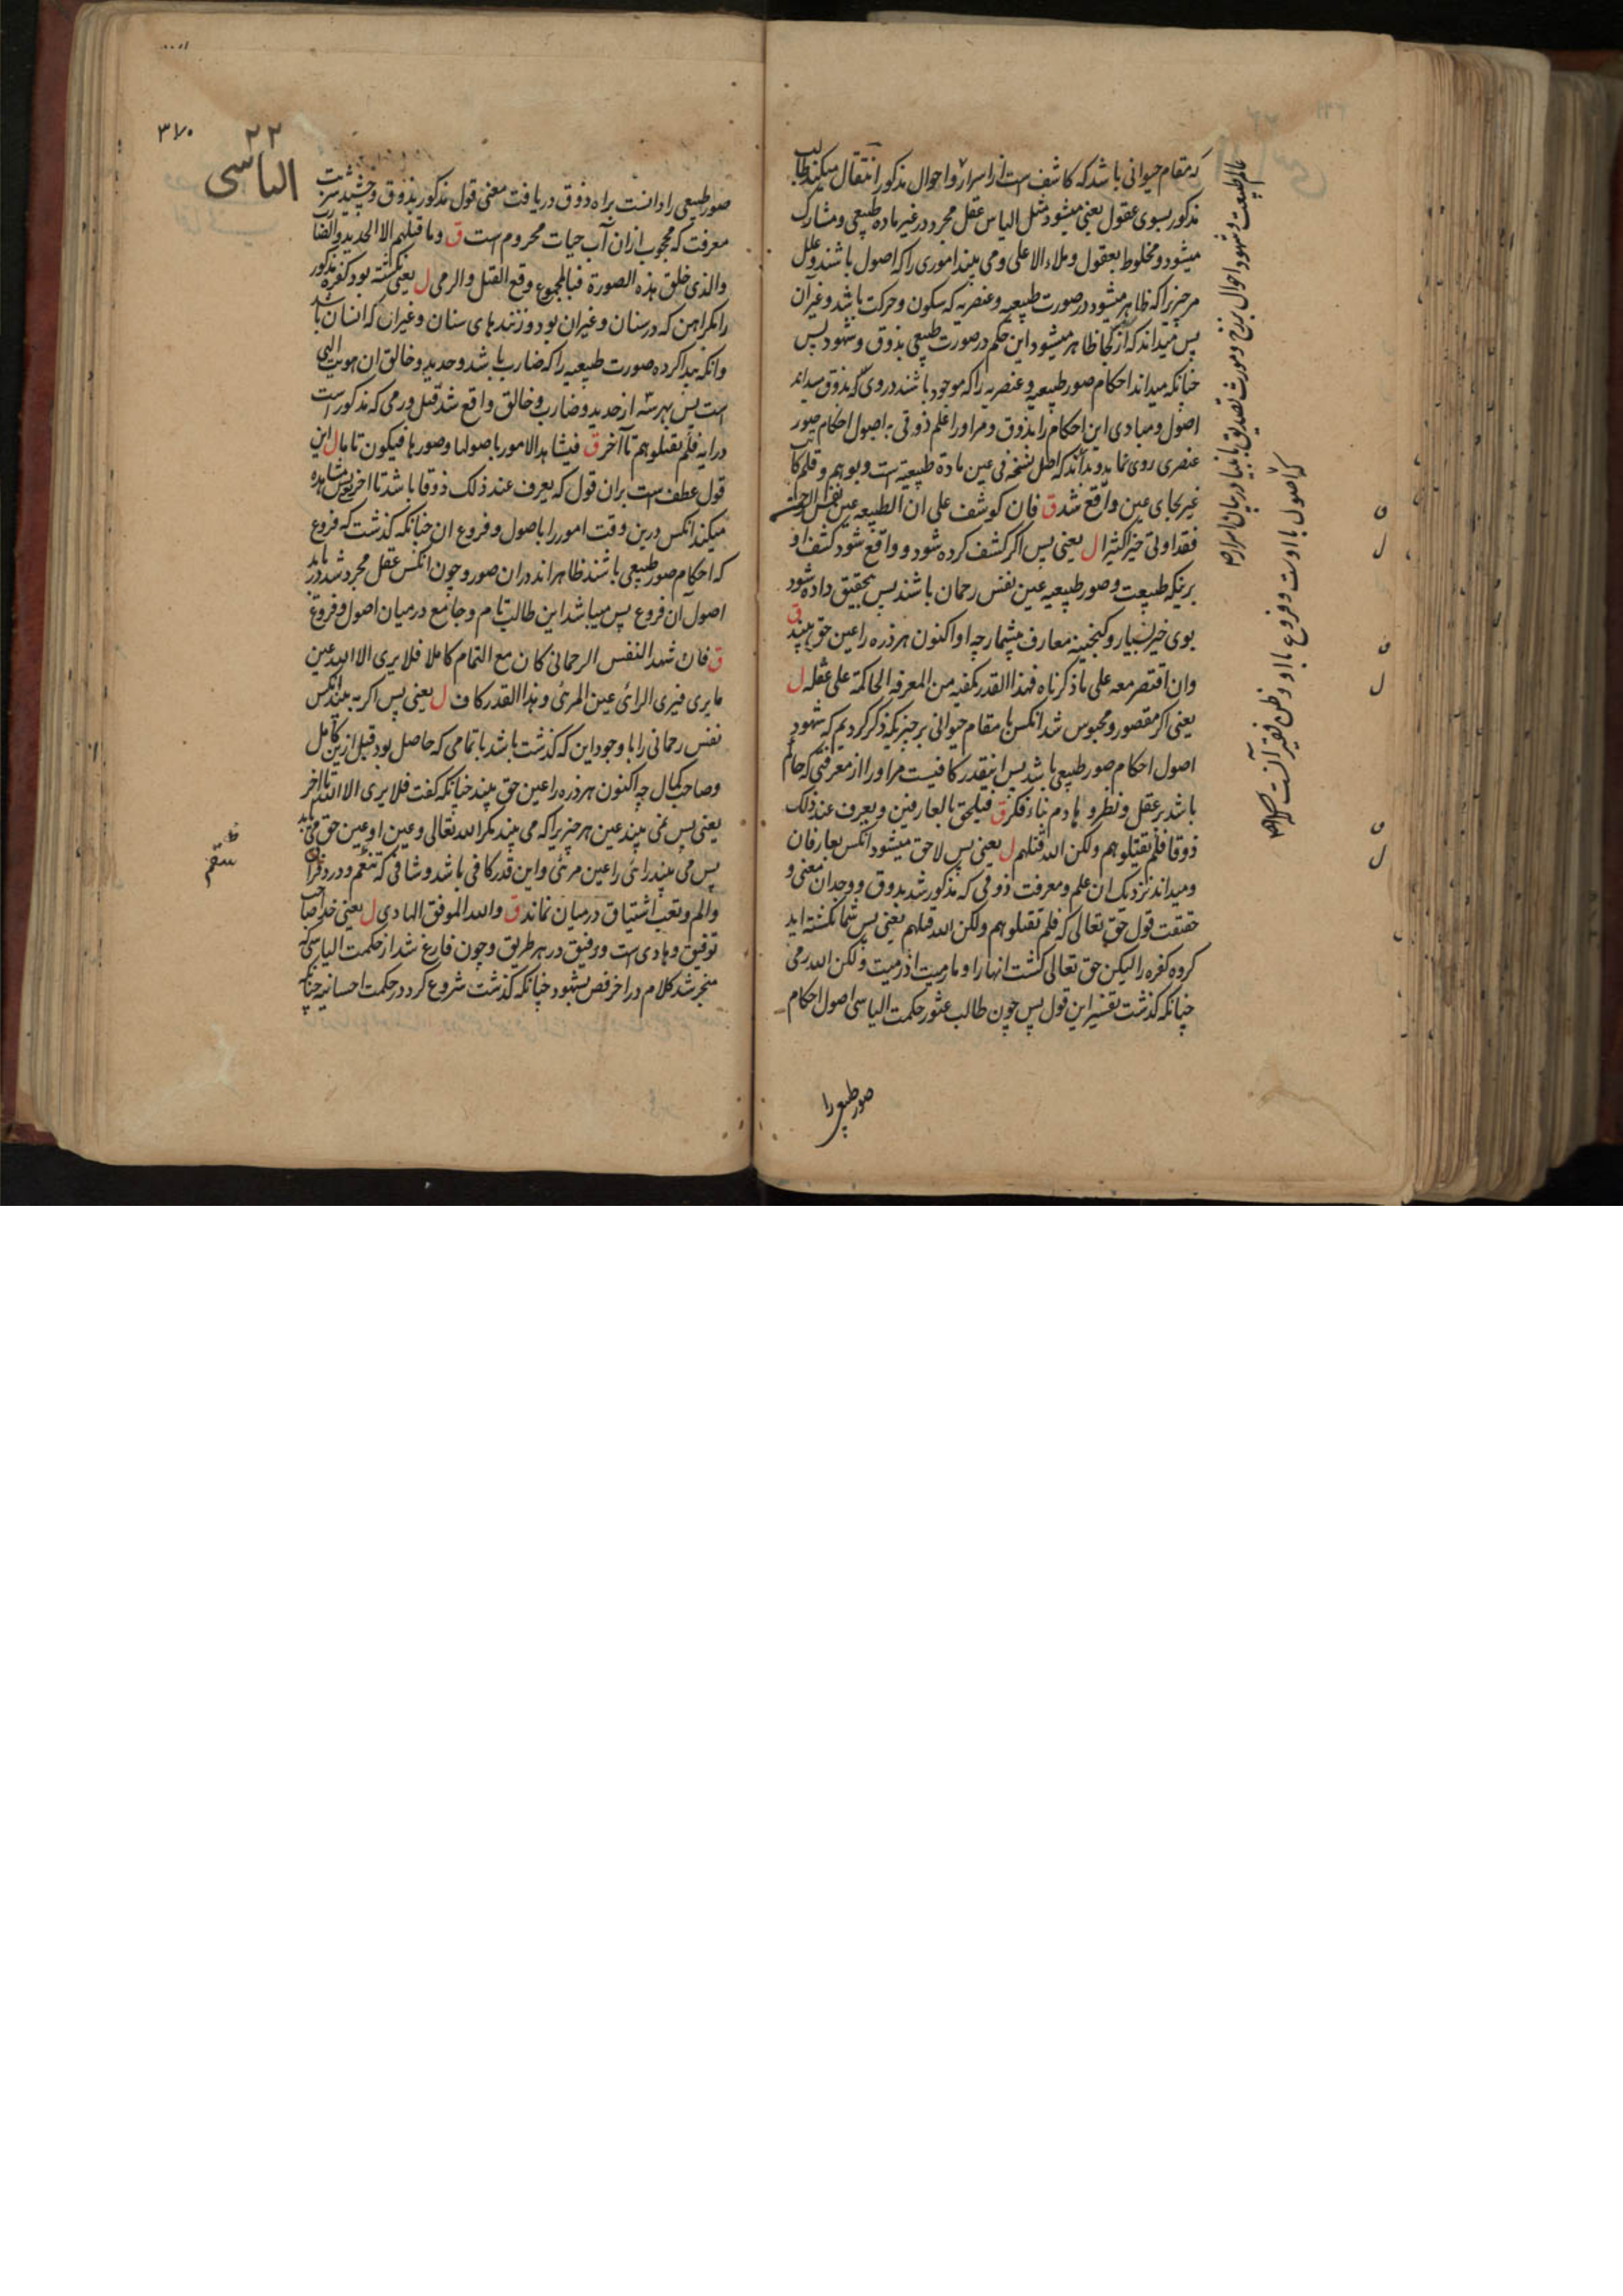 که مقام حیوانی باشد که کاشف است از اسرار و احوال مذکور انتقال میکند طالب
مذکور بسوی عقول یعنی میشود مثل الیاس عقل مجرد در غیر ماده طبیعی و مشارک
میشود و مخلوط بعقول و ملاء الاعلی و می بیند اموری را که اصول باشند و علل
مر چیزیرا که ظاهر میشود در صورت طبیعیه و عنصریه که سکون و حرکت باشد و غیر آن
پس میداند که از کجا ظاهر میشود این حکم در صورت طبیعی بذوق و شهود پس
چنانکه میداند احکام صور طبیعیه و عنصریه را که موجود باشند در وی که بذوق میداند
اصول و مبادی این احکام را بذوق و مر او را علم ذوقی به اصول احکام صور
عنصری روی نماید و بداند که اصل نسخه فی عین مادة طبیعیة است و بوهم و قلم کاتب
غیر بجای عین واقع شد ق فان کوشف علی ان الطبیعه عین نفس الرحمن
فقد اوتی خیرا کثیرا ل یعنی پس اگر کشف کرده شود و واقع شود کشف او
برینکه طبیعت و صور طبیعیه عین نفس رحمان باشند پس بتحقیق داده شود
بوی خیر بسیار و گنجینه معارف بیشمار چه او اکنون هر ذره را عین حق بیند ق
وان اقتصر معه علی ما ذکرناه فهذا القدر یکفیه من المعرفه الحاکمة علی عقله ل
یعنی اگر مقصور و محبوس شد انکس با مقام حیوانی بر چیزیکه ذکر کردیم که شهود
اصول احکام صور طبیعی باشد پس اینقدر کافیست مر او را از معرفتی که حاکم
باشد بر عقل و نظر و هادم بناء فکر ق فیلحق بالعارفین و یعرف عند ذلک
ذوقا فلم تقتلوهم ولکن الله قتلهم ل یعنی پس لاحق میشود انکس بعارفان
و میداند نزدیک ان علم و معرفت ذوقی که مذکور شد بذوق و وجدان معنی و
حقیقت قول حق تعالی که فلم تقتلوهم ولکن الله قتلهم یعنی پس شما نکشته اید
گروه کفره را لیکن حق تعالی کشت انها را و ما رمیت اذ رمیت ولکن الله رمی
چنانکه گذشت تفسیر این قول پس چون طالب عثور حکمت الیاسی اصول احکام
صور طبیعی را
عالم طبیعت و شهود احوال برزخ و مورث تصدیق بانبیا در بیان اسرار
که اصول با اوست و فروع با او و ظن فقیر آنست
ق
ل
ق
ل
ق
ل
۳۷۰
۲۲
الیاسی
صور طبیعی را دانست براه ذوق دریافت معنی قول مذکور بذوق و چشید شربت
معرفت که محجوب ازان آب حیات محروم است ق وما قتلهم الا الحدید والضارب
والذی خلق هذه الصورة فبالمجموع وقع القتل والرمی ل یعنی نکشته بود کفره مذکور
را مگر اهن که در سنان و غیران بود و زنندهای سنان و غیران که انسان باشد
وانکه پیدا کرده صورت طبیعیه را که ضارب باشد و حدید و خالق ان هویت الهی
است پس بهر سه از حدید و ضارب و خالق واقع شد قتل و رمی که مذکور است
در ایه فلم تقتلوهم تا آخر ق فیشاهد الامور باصولها وصورها فیکون تاما ل این
قول عطف است بران قول که یعرف عند ذلک ذوقا باشد تا اخر یعنی پس مشاهده
میکند انکس درین وقت امور را باصول و فروع ان چنانکه گذشت که فروع
که احکام صور طبیعی باشند ظاهراند دران صور و چون انکس عقل مجرد شد دریابد
اصول آن فروع پس میباشد این طالب تام و جامع در میان اصول و فروع
ق فان شهد النفس الرحمانی کان مع التمام کاملا فلا یری الا الله عین
ما یری فیری الرائی عین المرئی وهذا القدر کاف ل یعنی پس اگر به بیند انکس
نفس رحمانی را با وجود این که گذشت باشد با تمامی که حاصل بود قبل ازین کامل
و صاحب کمال چه اکنون هر ذره را عین حق بیند چنانکه گفت فلا یری الا الله تا اخر
یعنی پس نمی بیند عین هر چیزیرا که می بیند مگر الله تعالی و عین او عین حق می یابد
پس می بیند رائی را عین مرئی و این قدر کافی باشد و شافی که تنعم و درد فراق
و الم و تعب اشتیاق درمیان نماند ق والله الموفق الهادی ل یعنی خدا صاحب
توفیق و هادی است و رفیق در هر طریق و چون فارغ شد از حکمت الیاسی که
منجر شد کلام در اخر فص بشهود چنانکه گذشت شروع کرد در حکمت احسانیه چنانکه
سقم